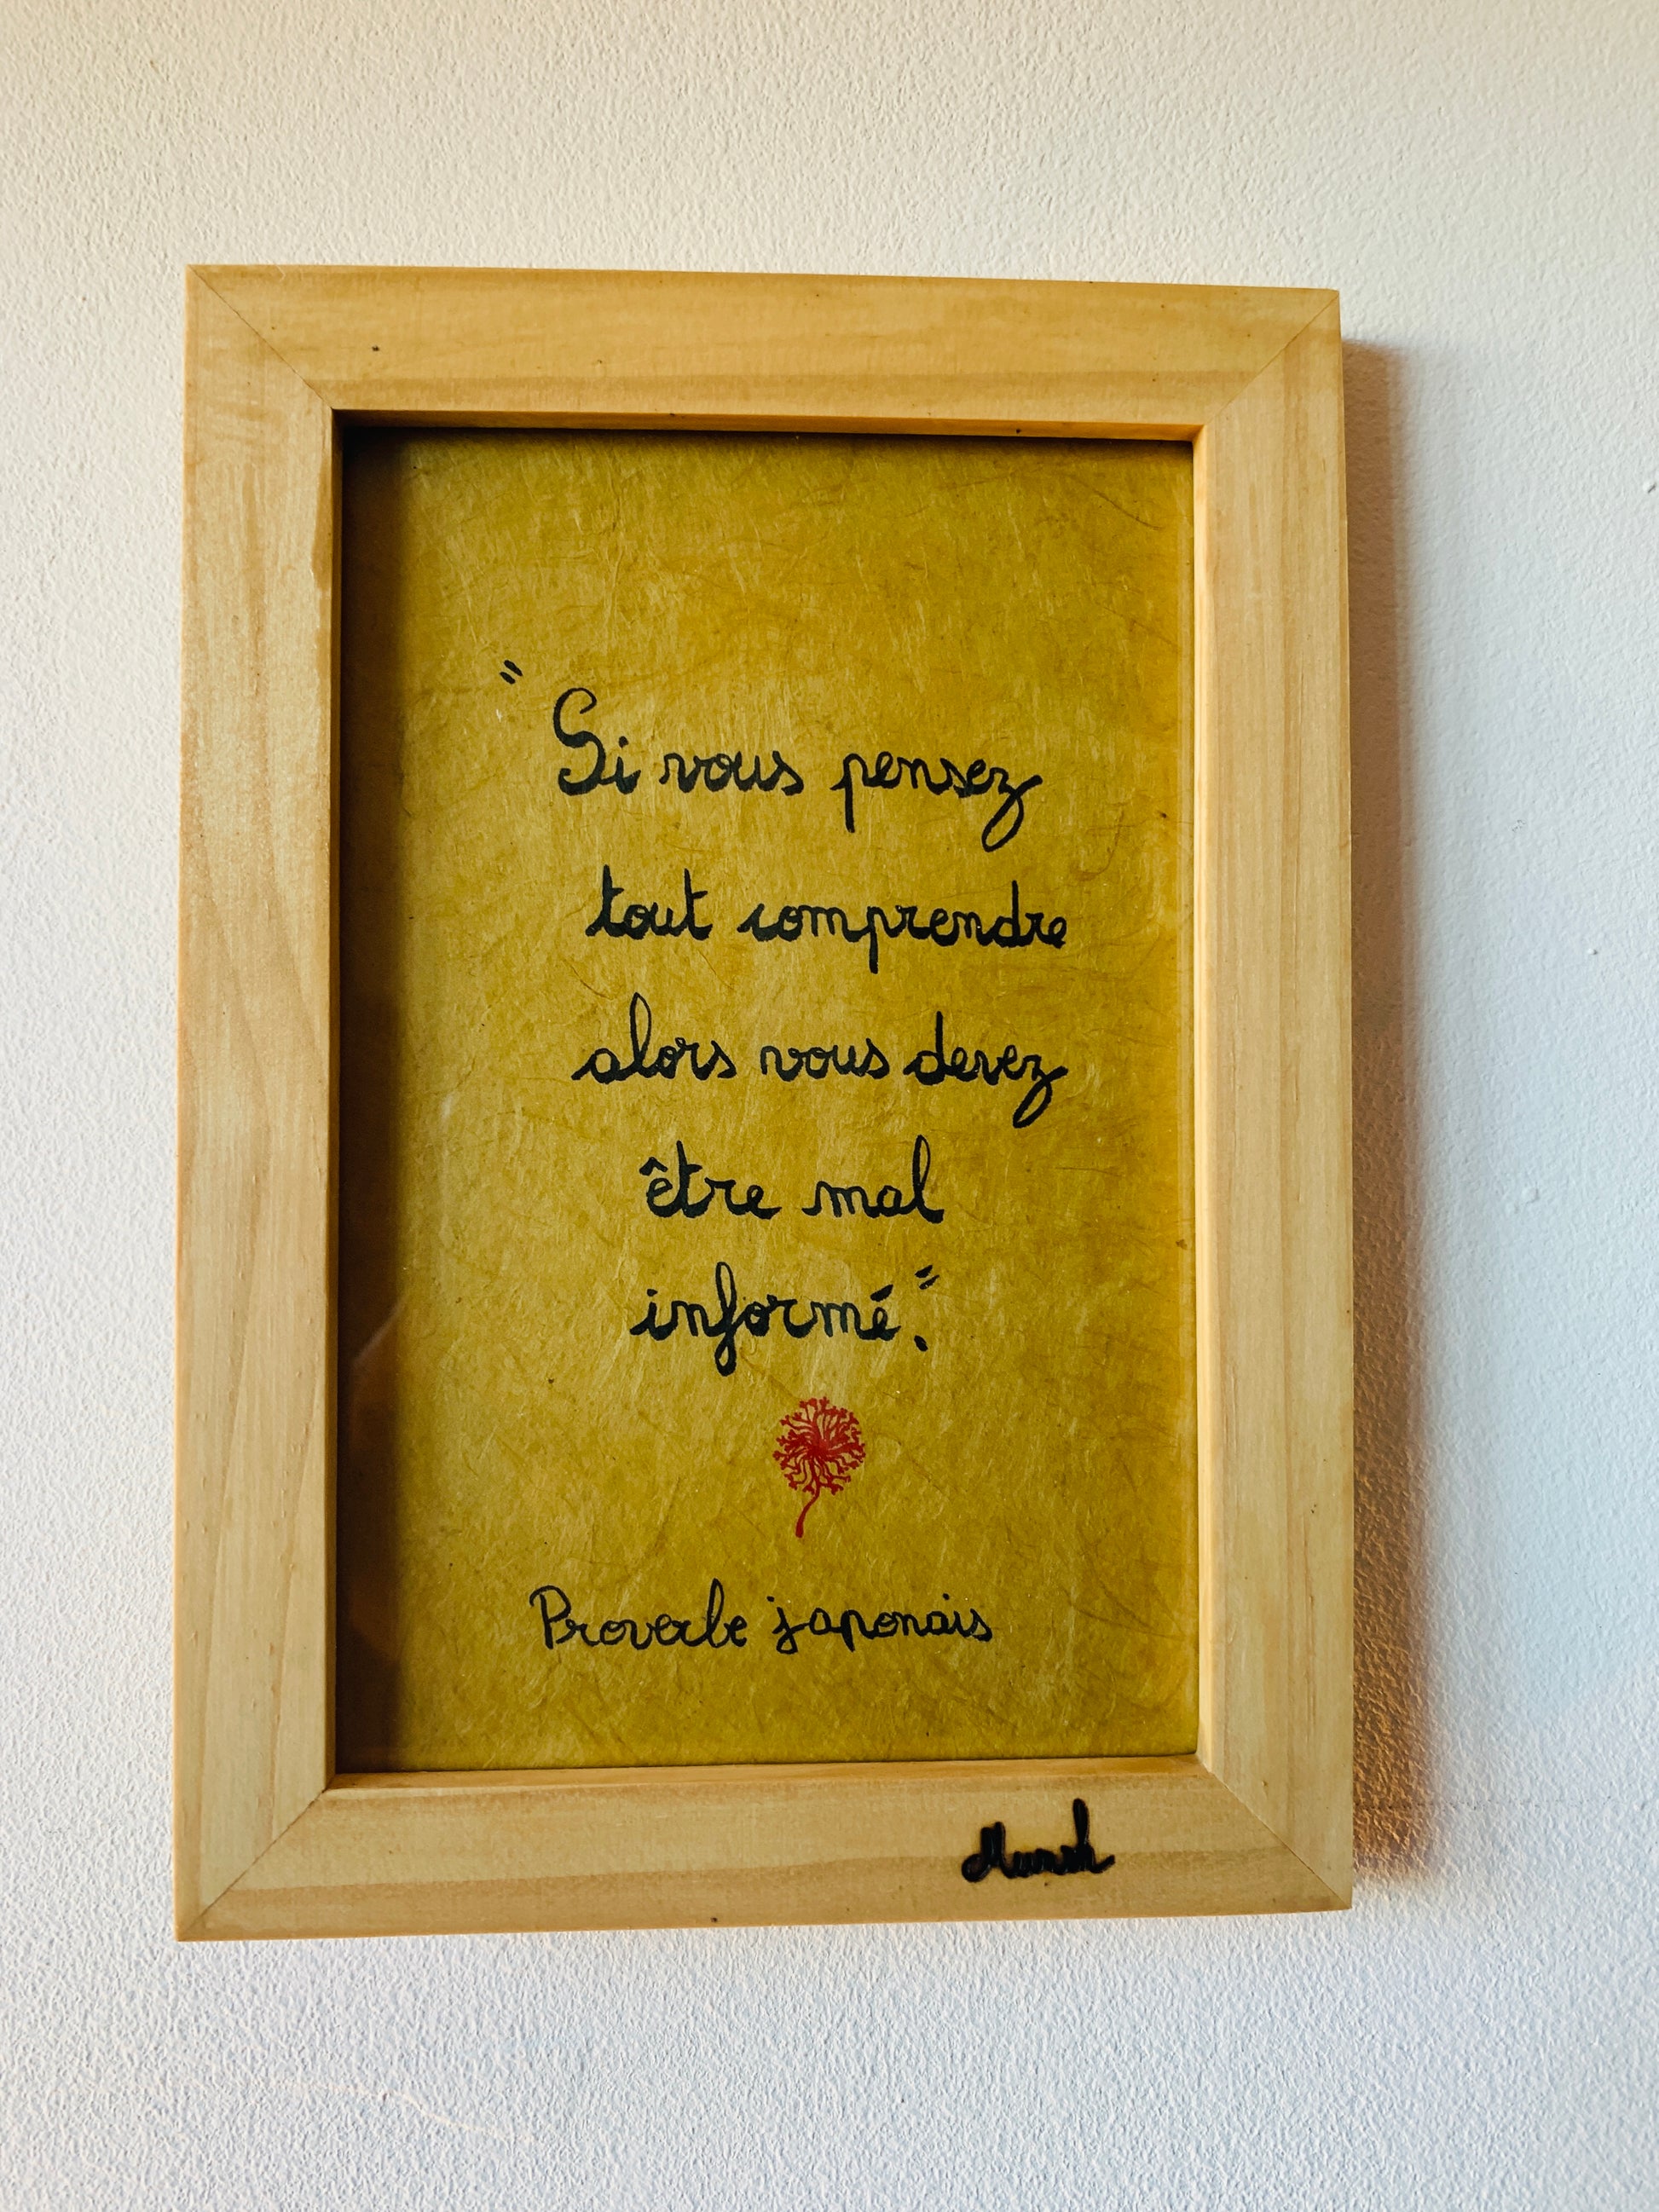 "Si vous pensez
tout comprendre
alors vous devez
être mal
informé."
Proverbe japonais